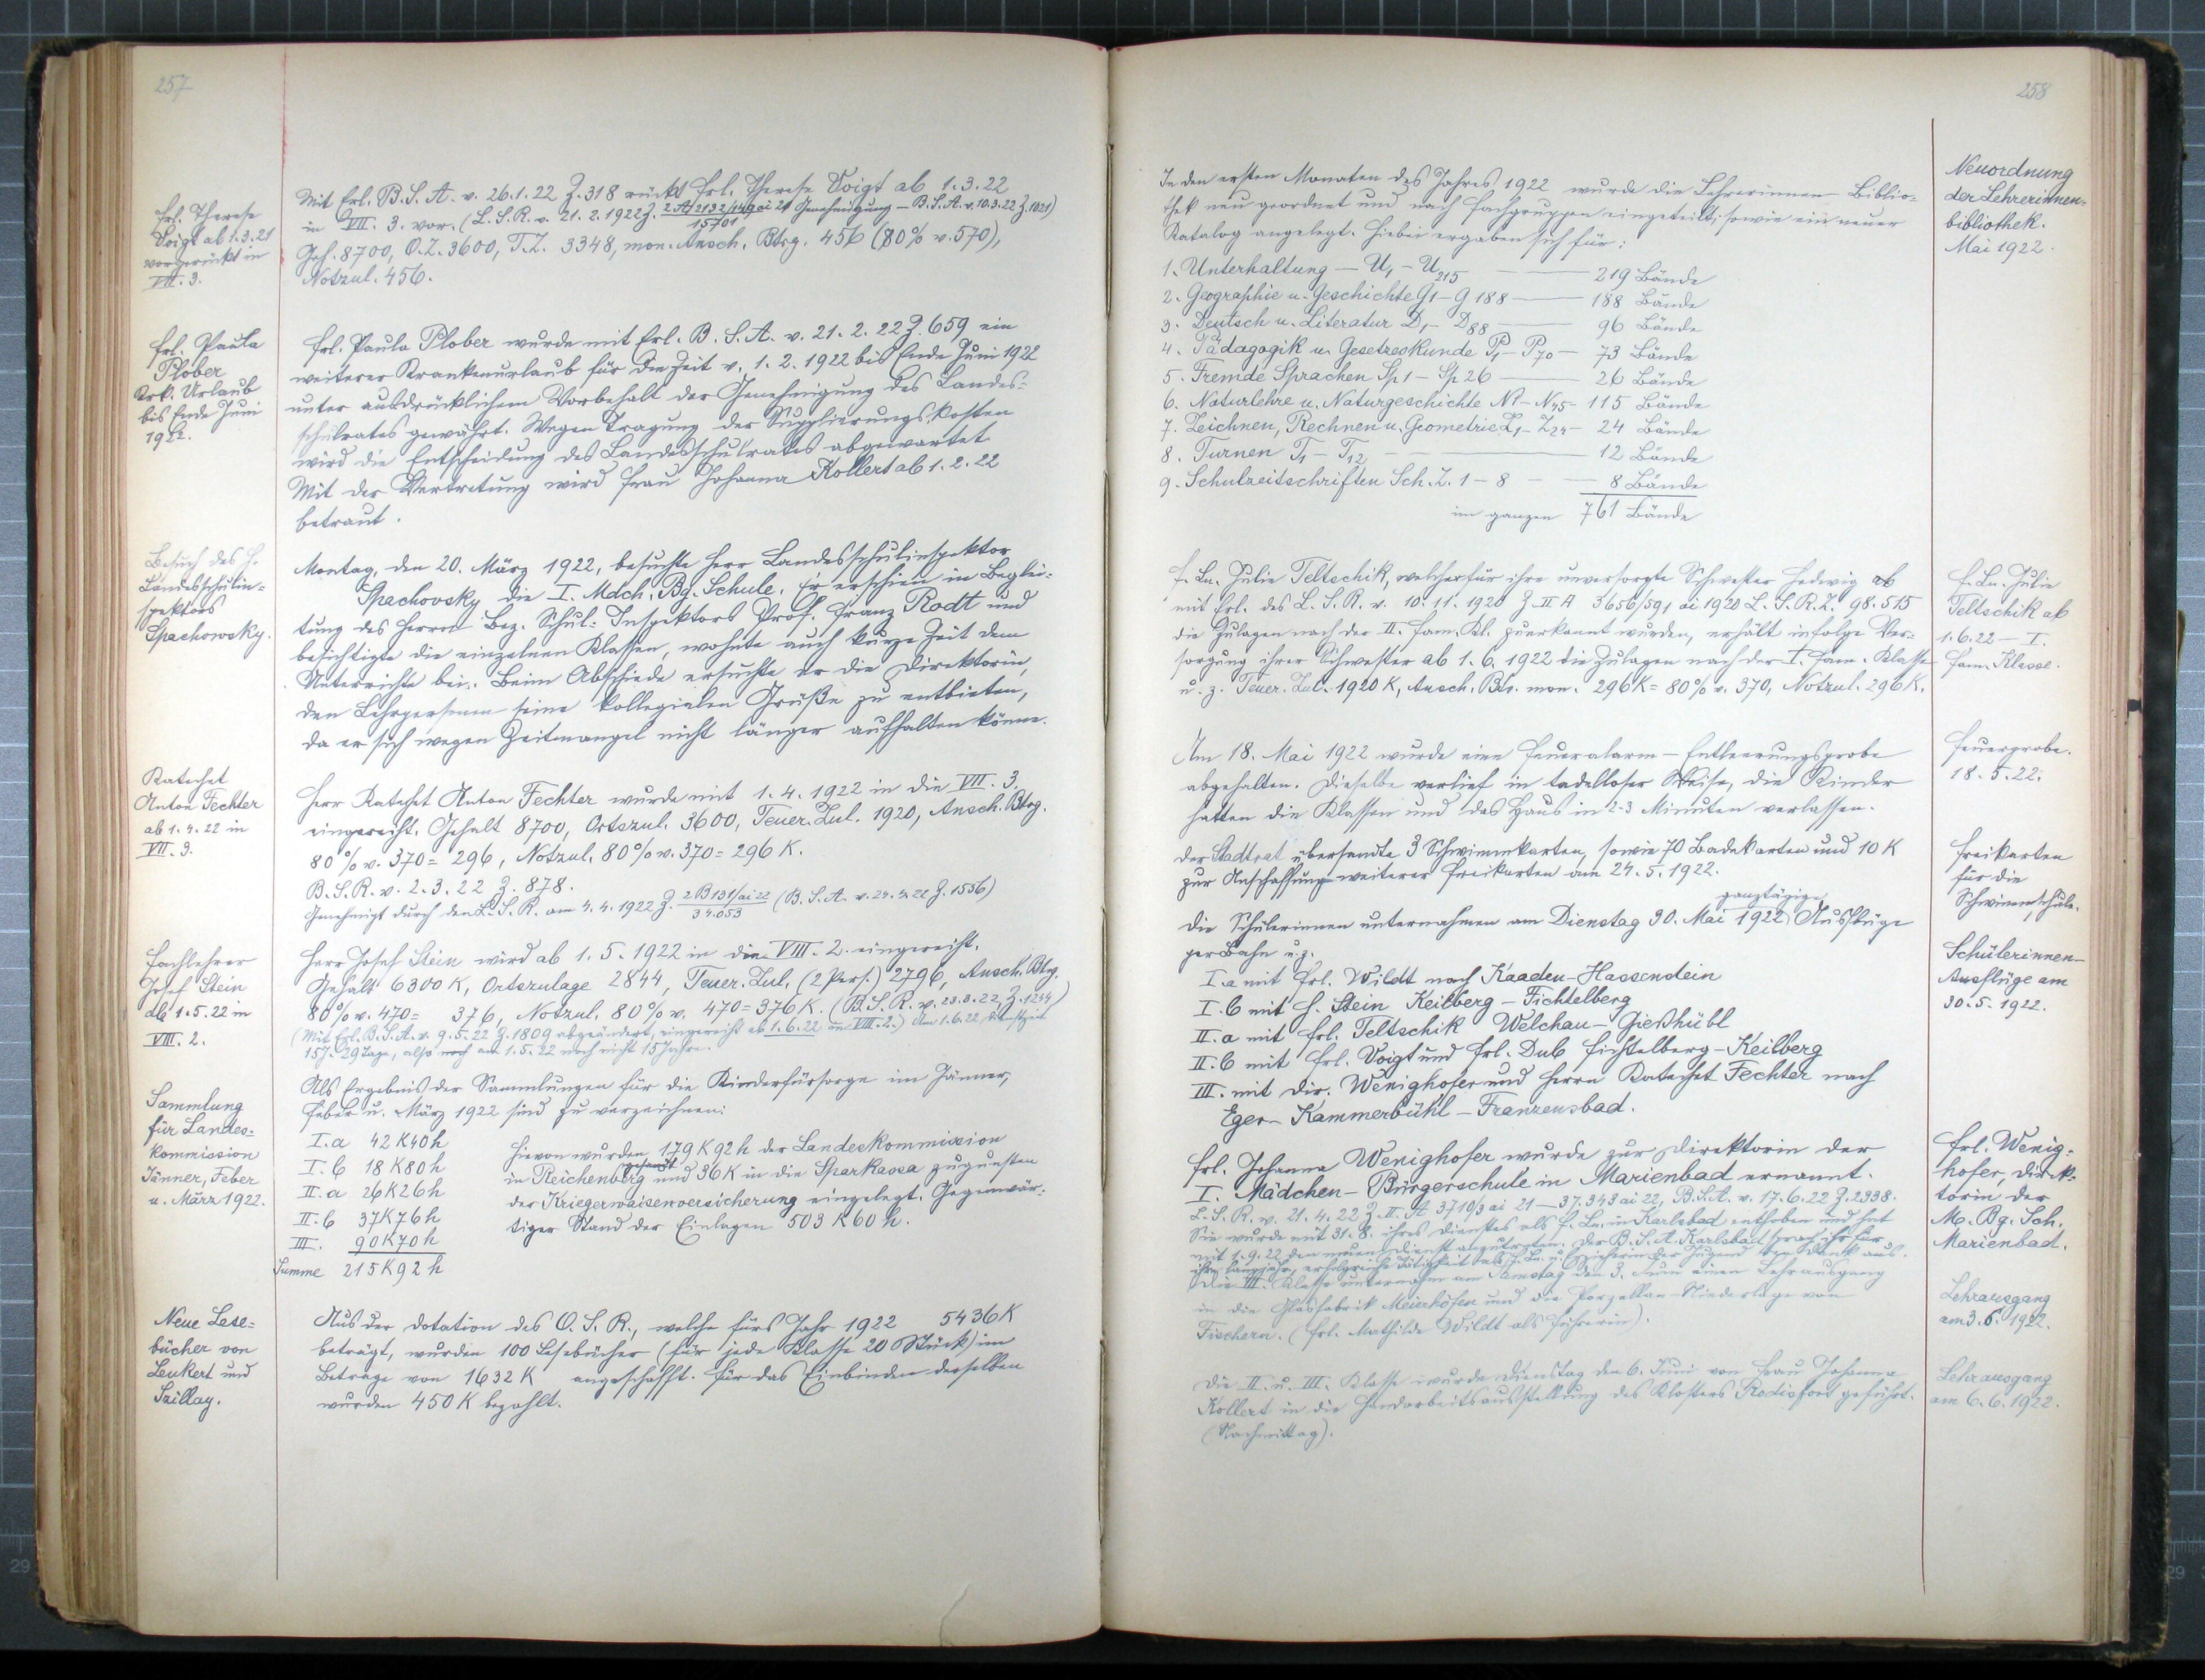 257
Frl. Therese
Voigt ab 1.3.21
vorgerückt in
VII. 3.
Mit Erl. B.S.A. v. 26.1.22 Z.318 rückt Frl. Therese Voigt ab 1.3.22
in VII. 3. vor. (L.S.R. v. 21.2.1922 Z. Genehmigung – B.S.A. v. 10.3.22 Z.1021)
Geh. 8700, O.Z. 3600, T.Z. 3348, mon. Ansch. Btrg. 456 (80% v. 570),
Notzul. 456.
Frl. Paula
Plober
Krk. Urlaub
bis Ende Juni
1922.
Frl. Paula Plober wurde mit Erl. B.S.A. v. 21.2.22 Z.659 ein
weiterer Krankenurlaub für die Zeit v. 1.2.1922 bis Ende Juni 1922
unter ausdrücklichem Vorbehalt der Genehmigung des Landes-
schulrates gewährt. Wegen Tragung der Supplierungskosten
wird die Entscheidung des Landesschulrates abgewartet
Mit der Vertretung wird Frau Johanna Kollert ab 1.2.22
betraut.
Besuch des H.
Landesschulin-
spektors
Spachowsky.
Montag, den 20. März 1922, besuchte Herr Landesschulinspektor
Spachovsky die I. Mdch. Bg. Schule. Er erschien in Beglei-
tung des Herrn Bez. Schul-Inspektors Prof. Franz Rodt und
besichtigte die einzelnen Klassen, wohnte auch kurze Zeit dem
Unterrichte bei. Beim Abschiede ersuchte er die Direktorin,
den Lehrpersonen seine kollegialen Grüße zu entbieten,
da er sich wegen Zeitmangel nicht länger aufhalten könne.
Katechet
Anton Fechter
ab 1.4.22 in
VII. 3.
Herr Katechet Anton Fechter wurde mit 1.4.1922 in die VII. 3.
eingereiht. Gehalt 8700, Ortszul. 3600, Teuer. Zul. 1920, Ansch. Btrg.
80% v. 370 = 296, Notzul. 80% v. 370 = 296 K.
B.S.R. v. 2.3.22 Z. 878.
Genehmigt durch den L.S.R. am 4.4.1922 Z. 2 B 131/ai 22 / 34.053 (B.S.A. v. 24.4.22 Z. 1556)
Fachlehrer
Josef Stein
ab 1.5.22 in
VIII. 2.
Herr Josef Stein wird ab 1.5.1922 in die VIII. 2. eingereiht.
Gehalt 6300 K, Ortszulage 2844, Teuer. Zul. (2 Pers.) 2796, Ansch. Btrg.
80% v. 470 = 376, Notzul. 80% v. 470 = 376 K. (B.S.R. v. 23.3.22, Z. 1244)
(Mit Erl. B.S.A. v. 9.5.22 Z. 1809 abgeändert, eingereiht ab 1.6.22 in VIII. 2.) Am 1.6.22 Dienstzeit
15 J. 29 Tage, also noch am 1.5.22 noch nicht 15 Jahre.
Sammlung
für Landes-
kommission
Jänner, Feber
u. März 1922.
Als Ergebnis der Sammlungen für die Kinderfürsorge im Jänner,
Feber u. März 1922 sind zu verzeichnen:
I. a 42 K 40 h
I. b 18 K 80 h
II. a 26 K 26 h
II. b 37 K 76 h
III. 90 K 70 h
Summe 215 K 92 h
Hievon wurden 179 K 92 h der Landeskommission
in Reichenberg gesandt und 36 K in die Sparkassa zugunsten
der Kriegerwaisenversicherung eingelegt. Gegenwär-
tiger Stand der Einlagen 503 K 60 h.
Neue Lese-
bücher von
Leukert und
Szillay.
Aus der Dotation des O.S.R., welche fürs Jahr 1922 5436 K
beträgt, wurden 100 Lesebücher (für jede Klasse 20 Stück) im
Betrage von 1632 K angeschafft. Für das Einbinden derselben
wurden 450 K bezahlt.
258
In den ersten Monaten des Jahres 1922 wurde die Lehrerinnen-Biblio-
thek neu geordnet und nach Fachgruppen eingeteilt, sowie ein neuer
Katalog angelegt. Hiebei ergaben sich für:
Neuordnung
der Lehrerinnen-
bibliothek.
Mai 1922.
1. Unterhaltung – U1 – U215 — 219 Bände
2. Geographie u. Geschichte G1 – G 188 — 188 Bände
3. Deutsch u. Literatur D1 – D88 — 96 Bände
4. Pädagogik u. Gesetzeskunde P1 – P70 – 73 Bände
5. Fremde Sprachen Sp1 – Sp 26 — 26 Bände
6. Naturlehre u. Naturgeschichte N1 – N45 – 115 Bände
7. Zeichnen, Rechnen u. Geometrie Z1 – Z24 – 24 Bände
8. Turnen T1 – T12 — 12 Bände
9. Schulzeitschriften Sch. Z. 1 – 8 — 8 Bände
im ganzen 761 Bände
F. Ln. Julie Teltschik, welcher für ihre unversorgte Schwester Hedwig ab
mit Erl. des L.S.R. v. 10.11.1920 Z. II A 3656/59, ai 1920 L.S.R.Z. 98.515
die Zulagen nach der II. Fam. Kl. zuerkannt wurden, erhält infolge Ver-
sorgung ihrer Schwester ab 1.6.1922 die Zulagen nach der I. Fam. Klasse
u. z. Teuer. Zul. 1920 K, Ansch. Btr. mon. 296 K = 80% v. 370, Notzul. 296 K.
F. Ln. Julie
Teltschik ab
1.6.22 – I.
Fam. Klasse.
Am 18. Mai 1922 wurde eine Feueralarm-Entleerungsprobe
abgehalten. Dieselbe verlief in tadelloser Weise, die Kinder
hatten die Klassen und das Haus in 2-3 Minuten verlassen.
Feuerprobe.
18.5.22.
Der Stadtrat übersandte 3 Schwimmkarten, sowie 70 Badekarten und 10 K
zur Anschaffung weiterer Freikarten am 24.5.1922.
Freikarten
für die
Schwimmschule.
Die Schülerinnen unternahmen am Dienstag 30. Mai 1922 ganztägige Ausflüge
per Bahn u. z.
I. a mit Frl. Wildt nach Kaaden-Hassenstein
I. b mit H. Stein Keilberg – Fichtelberg
II. a mit Frl. Teltschik Welchau – Gießhübl
II. b mit Frl. Voigt und Frl. Dub Fichtelberg – Keilberg
III. mit Dir. Wenighofer und Herrn Katechet Fechter nach
Eger – Kammerbühl – Franzensbad.
Schülerinnen-
Ausflüge am
30.5.1922.
Frl. Johanna Wenighofer wurde zur Direktorin der
I. Mädchen-Bürgerschule in Marienbad ernannt.
L.S.R. v. 21.4.22 Z. II. A 3710/3 ai 21 – 37.343 ai 22, B.S.A. v. 17.6.22 Z. 2338.
Sie wurde mit 31.8. ihres Dienstes als F. Ln. in Karlsbad enthoben und hat
mit 1.9.22 den neuen Dienst anzutreten. Der B.S.A. Karlsbad sprach ihr für
ihre langjähr., erfolgreiche Tätigkeit als F. Ln. u. Erzieherin der Jugend den Dank aus.
Frl. Wenig-
hofer, Direk-
torin der
M. Bg. Sch.
Marienbad.
Die III. Klasse unternahm am Samstag den 3. Juni einen Lehrausgang
in die Glasfabrik Meierhöfen und die Porzellan-Niederlage von
Fischern. (Frl. Mathilde Wildt als Führerin).
Lehrausgang
am 3.6.1922.
Die II. u. III. Klasse wurde Dienstag den 6. Juni von Frau Johanna
Kollert in die Handarbeitsausstellung des Klosters Rodisfort geführt.
(Nachmittag).
Lehrausgang
am 6.6.1922.
29
29